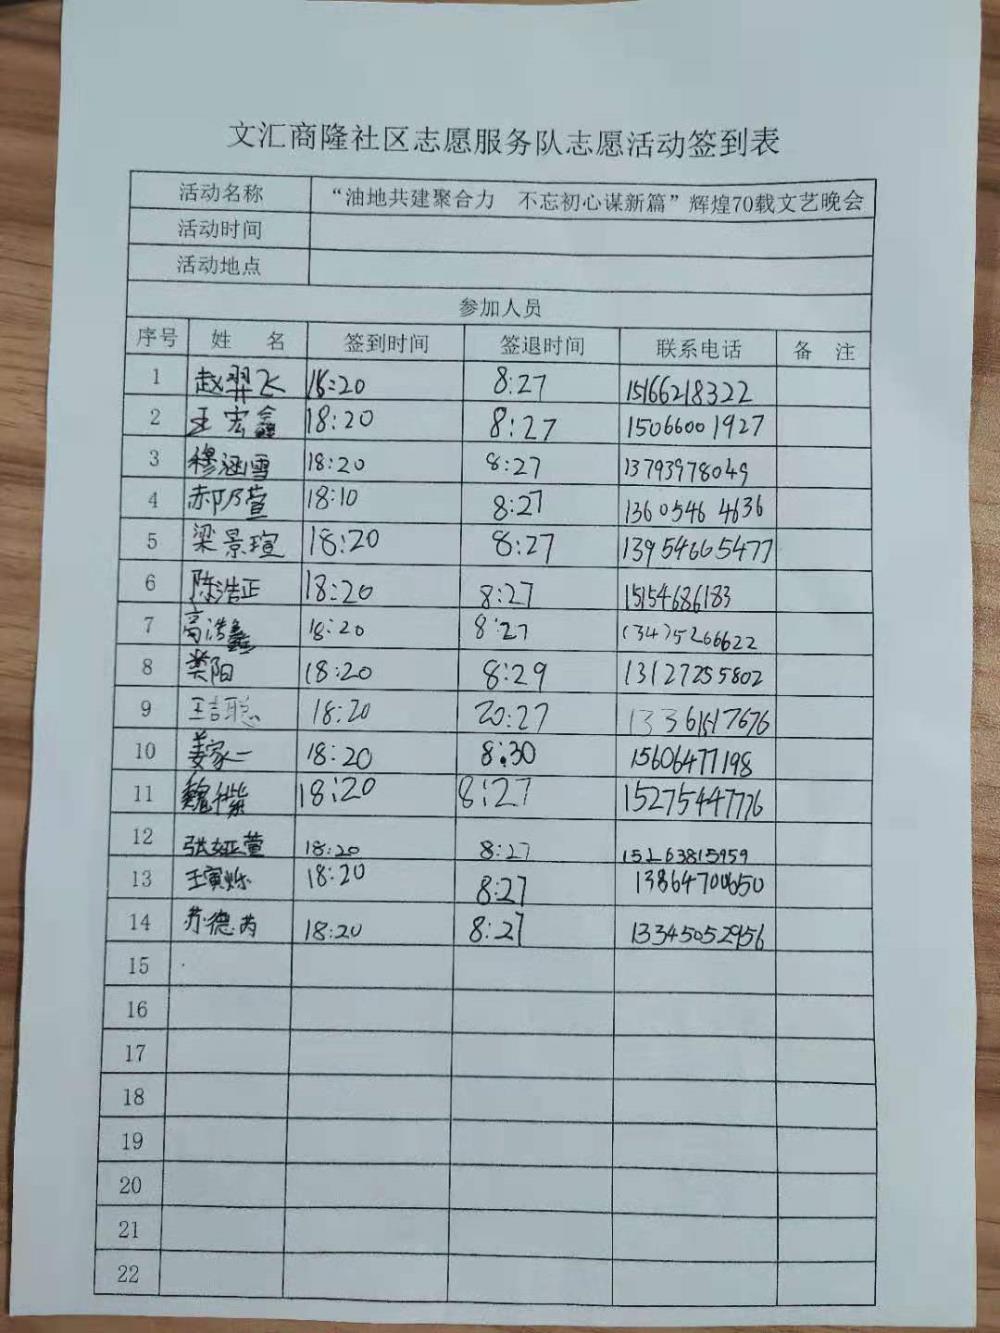 文汇商隆社区志愿服务队志愿活动签到表
活动名称 “油地共建聚合力 不忘初心谋新篇”辉煌70载文艺晚会
活动时间
活动地点
参加人员
序号 姓 名 签到时间 签退时间 联系电话 备 注
1 赵羿飞 18:20 8:27 15166218322
2 王宏鑫 18:20 8:27 15066001927
3 穆涵雪 18:20 8:27 13793978049
4 郝乃萱 18:10 8:27 13605464636
5 梁景瑄 18:20 8:27 13954665477
6 陈浩正 18:20 8:27 15154686183
7 高浩鑫 18:20 8:27 13475266622
8 樊阳 18:20 8:29 13127255802
9 王吉聪 18:20 20:27
10 姜家一 18:20 8:30 15606477198
11 18:20 8:27 15275447776
12 张娅萱 18:20 8:27 15263815959
13 王寅烁 18:20 8:27 13864700650
14 苏德芮 18:20 8:27 13345052956
15
16
17
18
19
20
21
22